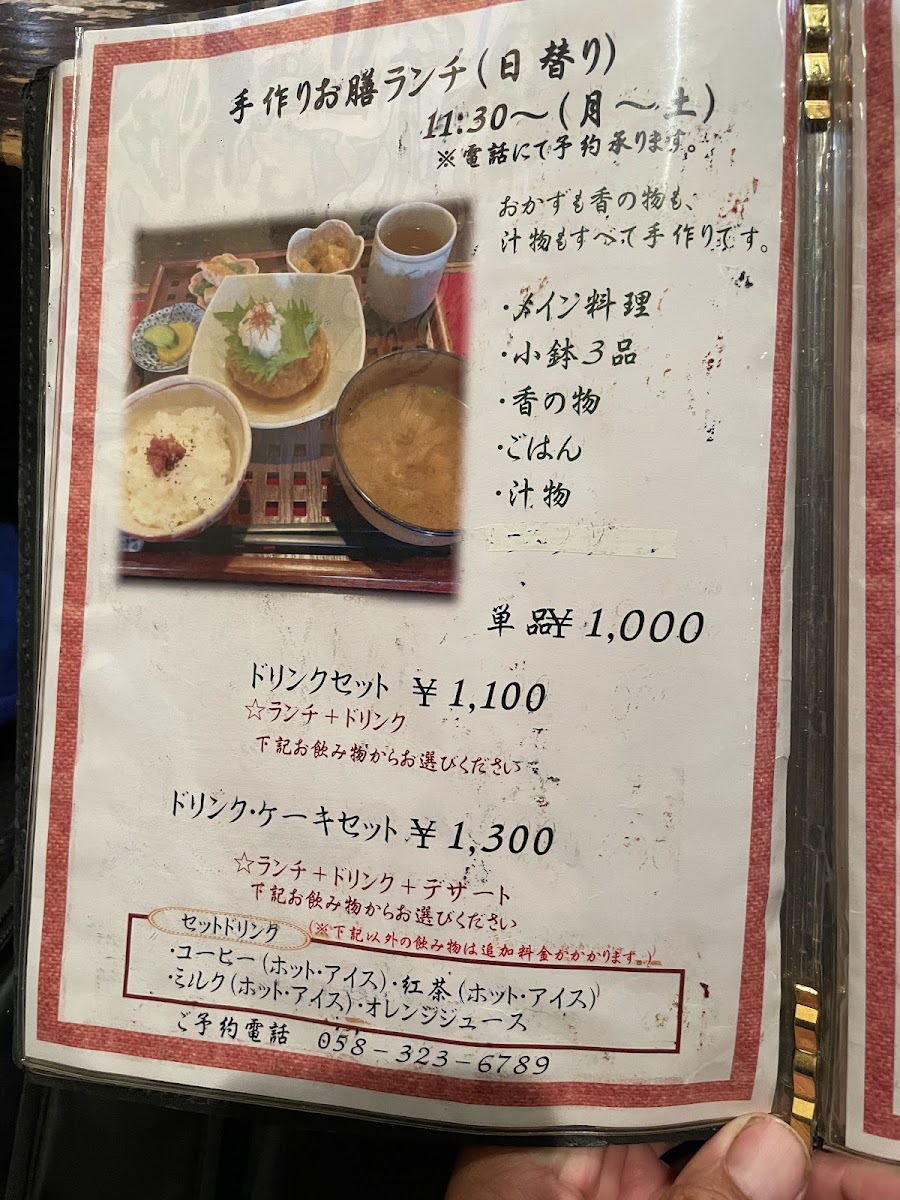 手作りお膳ランチ(日替り)
11:30～(月～土)
※電話にて予約承ります。
おかずも香の物も、
汁物もすべて手作りです。
・メイン料理
・小鉢3品
・香の物
・ごはん
・汁物
単品¥1,000
ドリンクセット ¥1,100
☆ランチ+ドリンク
下記お飲み物からお選びください
ドリンク・ケーキセット ¥1,300
☆ランチ+ドリンク+デザート
下記お飲み物からお選びください
セットドリンク (※下記以外の飲み物は追加料金がかかります。)
・コーヒー(ホット・アイス)・紅茶(ホット・アイス)
・ミルク(ホット・アイス)・オレンジジュース
ご予約電話 058-323-6789